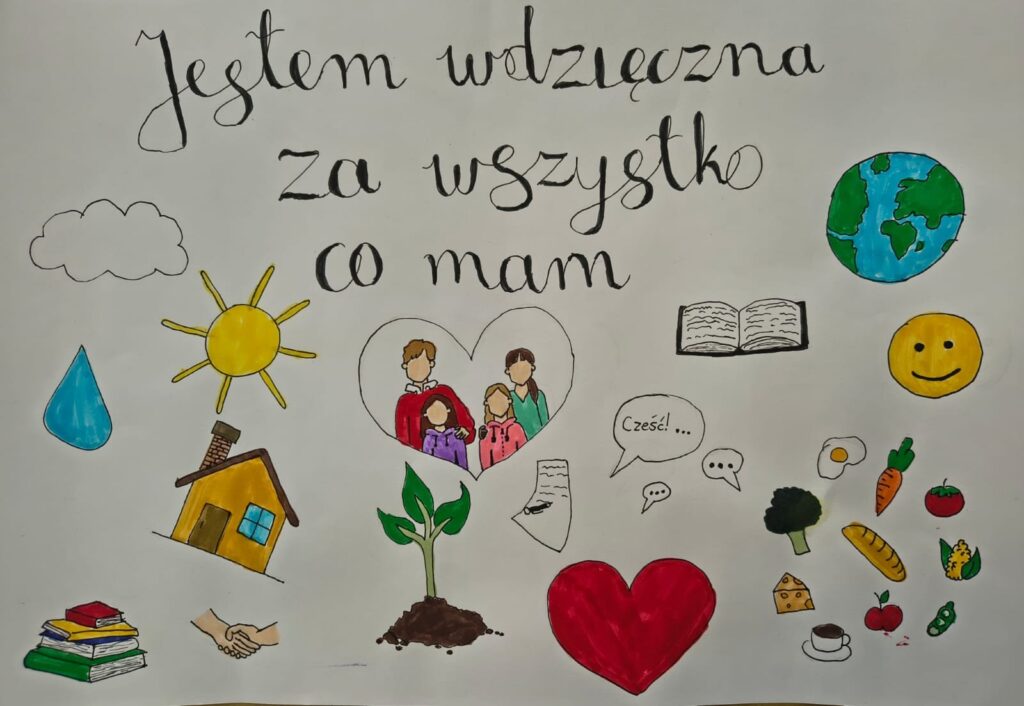 Jestem wdzięczna
za wszystko
co mam
Cześć! ...